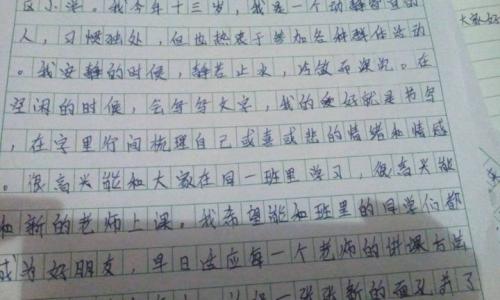 我今年十三岁,我是一个动静皆宜的
人,习惯独处,但也热衷于参加各种群体活动
。我安静的时候,静若止水,沉敛而深沉。在
空闲的时候,会写写文字,我的爱好就是书写
,在字里行间梳理自己或喜或悲的情绪和情感
。很高兴能和大家在同一班里学习,很高兴能
和新的老师上课。我希望能和班里的同学们都
成为好朋友,早日适应每一个老师的讲课方法
一张张新的面孔
大家好